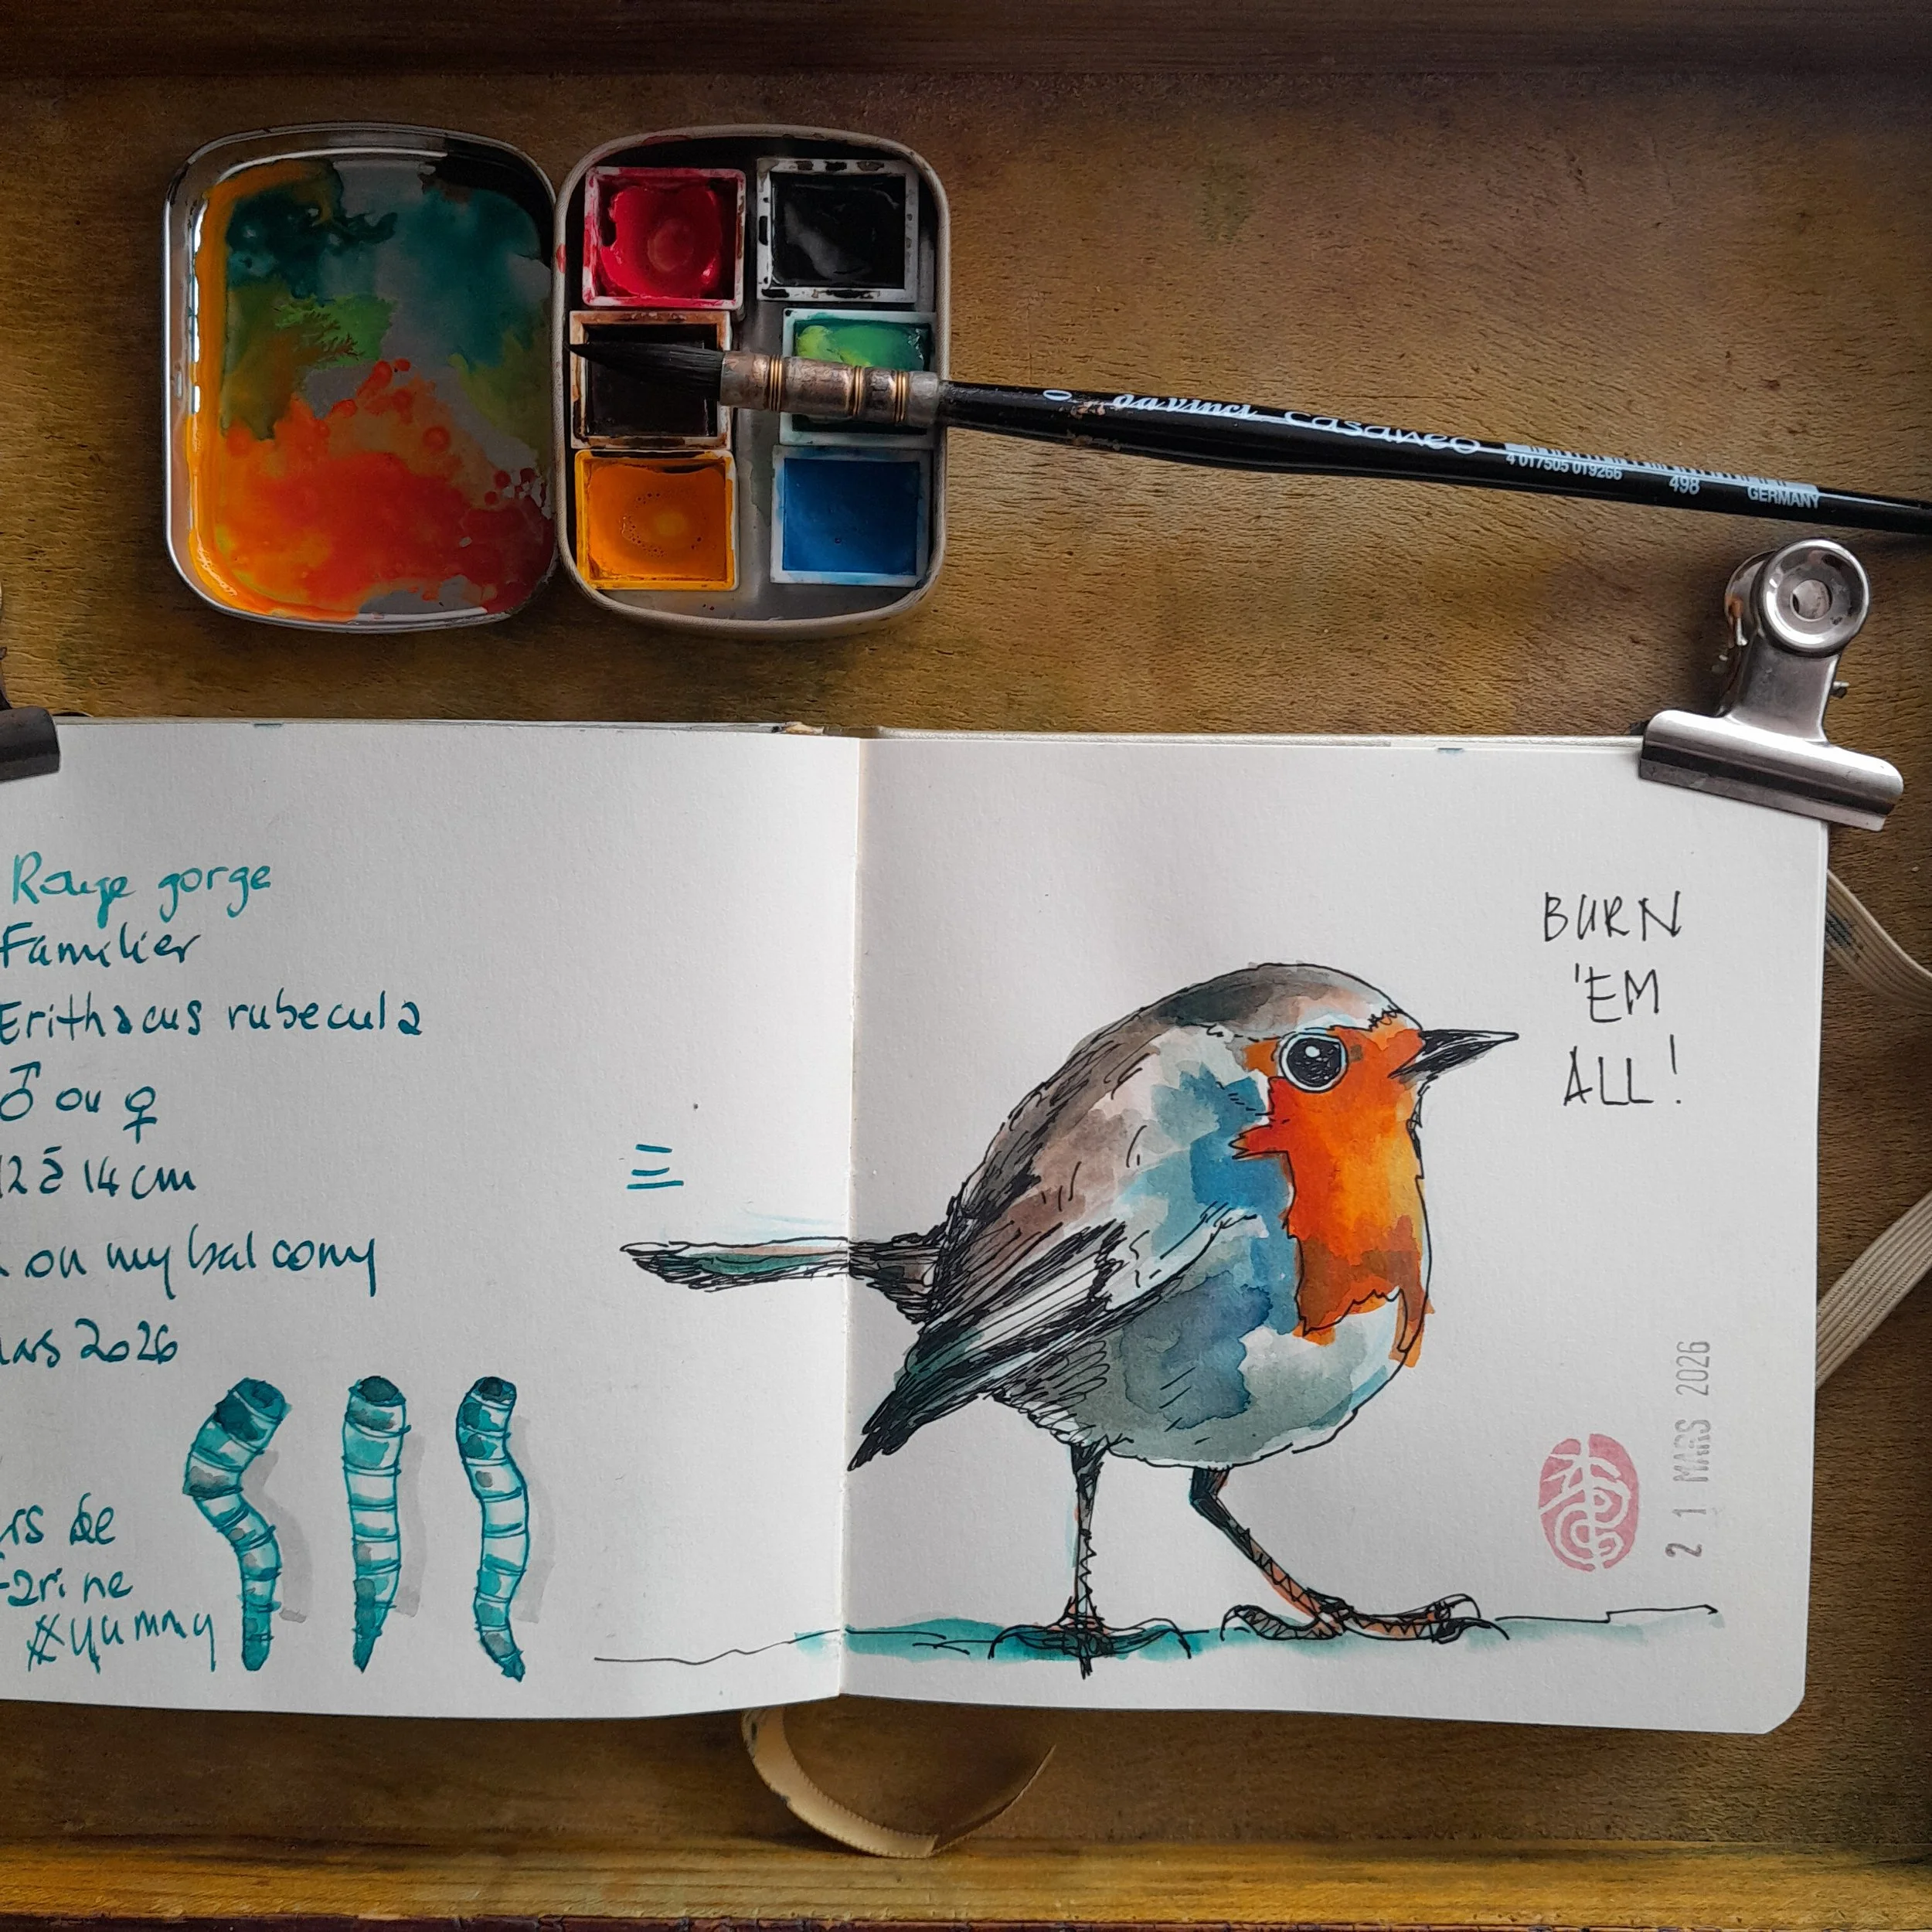 da Vinci CASANEO
4 017505 019266
498
GERMANY
Rouge gorge
Familier
Erithacus rubecula
♂ ou ♀
12 à 14 cm
on my balcony
2026
BURN
'EM
ALL!
de
#yummy
21 MARS 2026